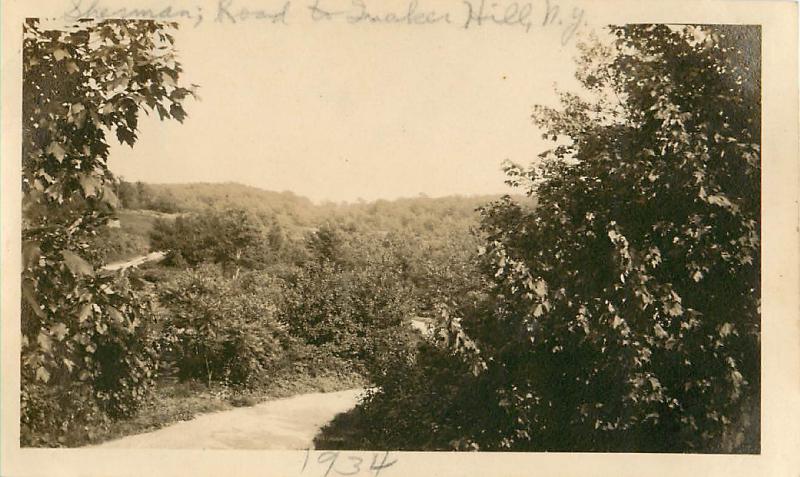 Sherman; Road to Quaker Hill, N.Y.
1934